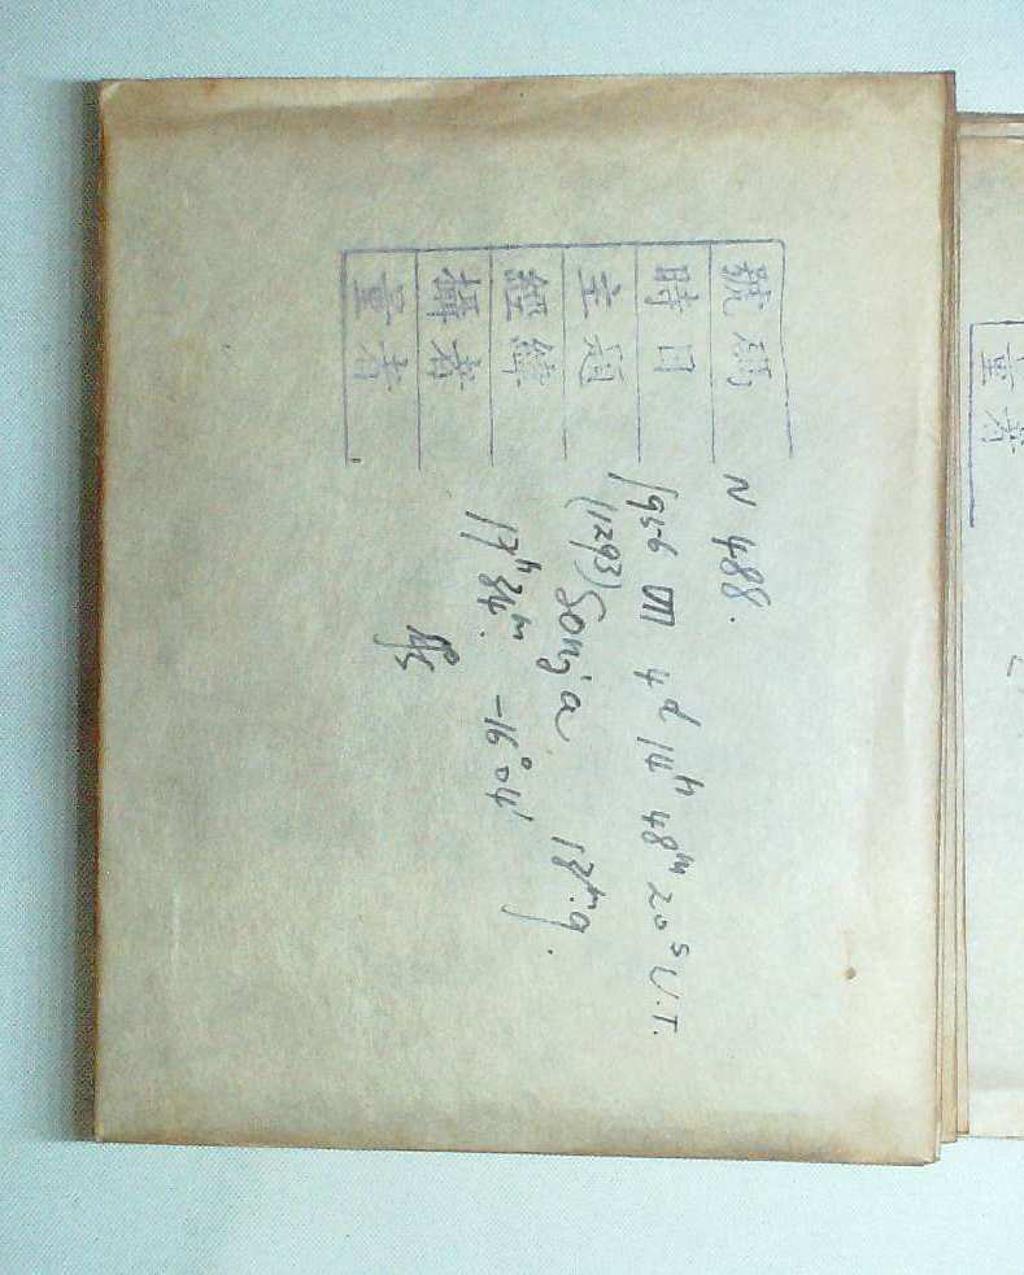 號碼 N 488.
時日 1956 VII 4ᵈ 14ʰ 48ᵐ 20ˢ U.T.
主題 (1293) Sonja 13ᵐ.9.
經緯 17ʰ34ᵐ. -16°04'
攝者
量者
量者